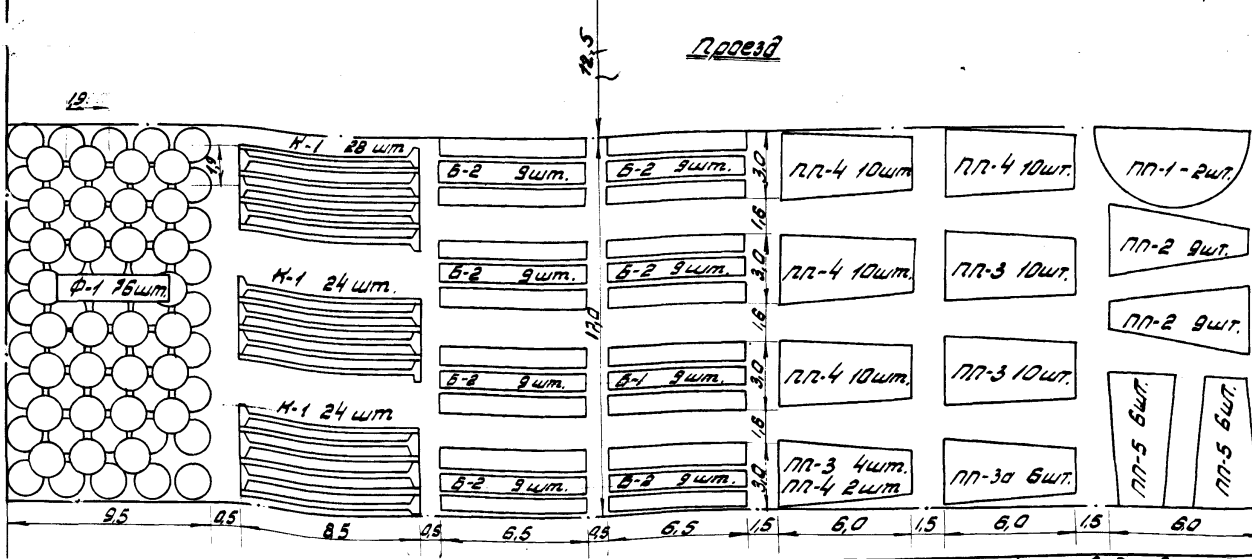 Проезд
12,5
1,9
1,9
К-1 28 шт
К-1 24 шт.
К-1 24 шт
Ф-1 76шт.
Б-2 9шт.
Б-2 9шт.
Б-2 9шт.
Б-2 9шт.
Б-2 9шт.
Б-2 9шт.
Б-1 9шт.
Б-2 9шт.
17,0
3,0
1,6
3,0
1,6
3,0
1,6
3,0
ПП-4 10шт
ПП-4 10шт.
ПП-4 10шт.
ПП-3 4шт.
ПП-4 2шт
ПП-4 10шт.
ПП-3 10шт.
ПП-3 10шт.
ПП-3а 6шт.
ПП-1-2шт.
ПП-2 9шт.
ПП-2 9шт.
ПП-5 6шт.
ПП-5 6шт.
9,5 0,5 8,5 0,5 6,5 0,5 6,5 1,5 6,0 1,5 6,0 1,5 6,0